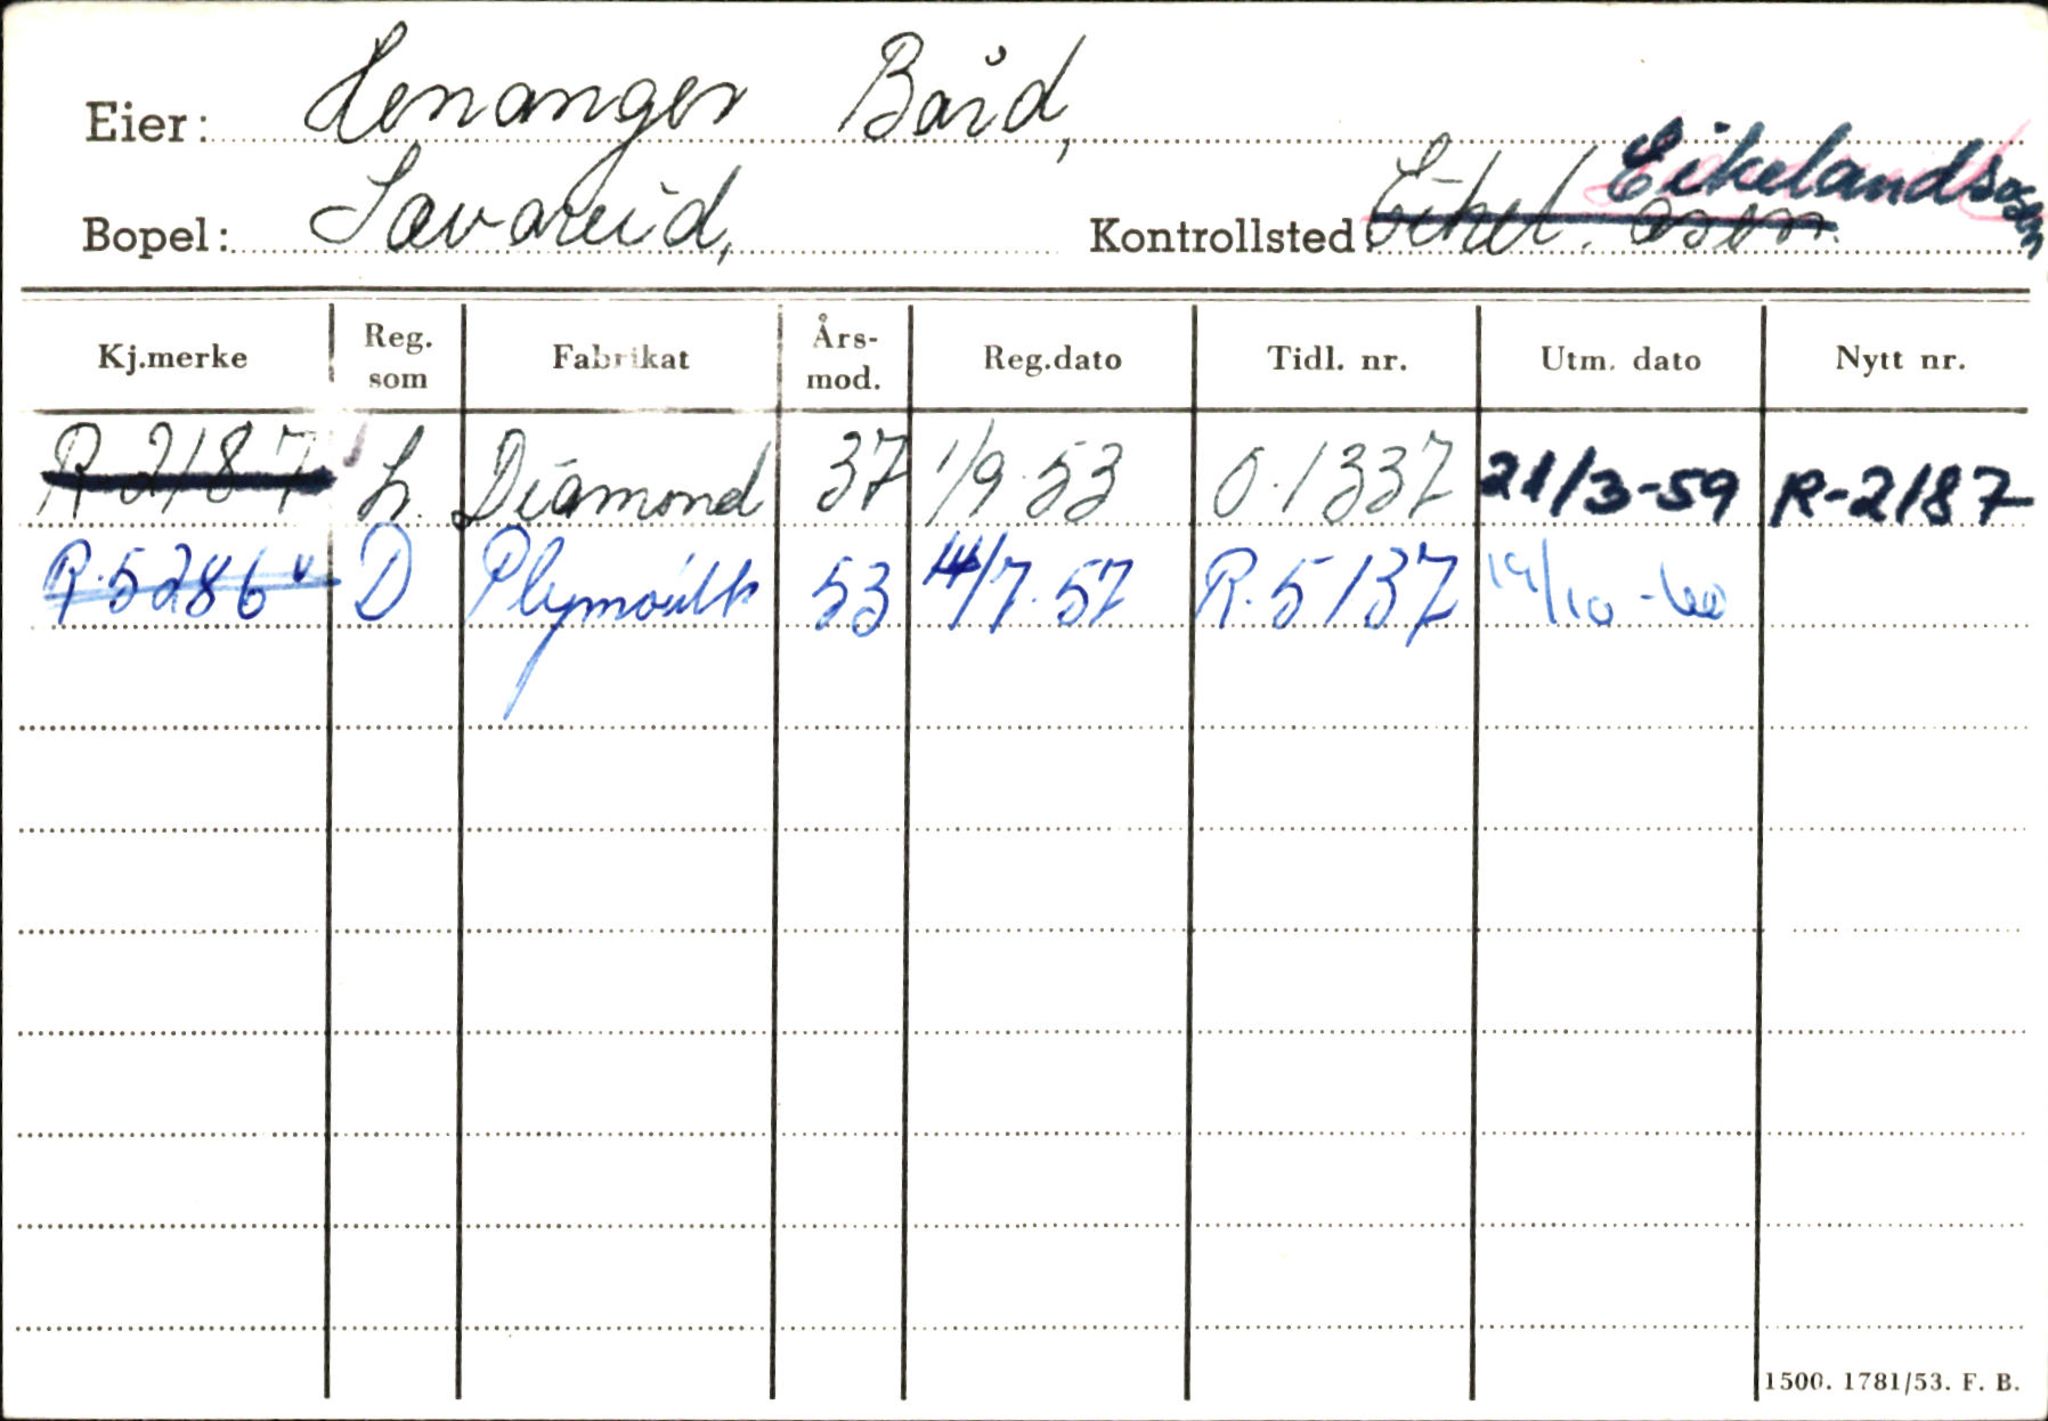 Eier: Henanger Bård,
Eikelandsosen
Bopel: Sævareid, Kontrollsted Eikel. osen.
Kj.merke Reg. som Fabrikat Års-mod. Reg.dato Tidl. nr. Utm. dato Nytt nr.
R-2187 L. Diamond 37 1/9-53 O.1337 21/3-59 R-2187
R.5286 D Plymouth 53 14/7.57 R.5137 19/10-60
1500. 1781/53. F. B.